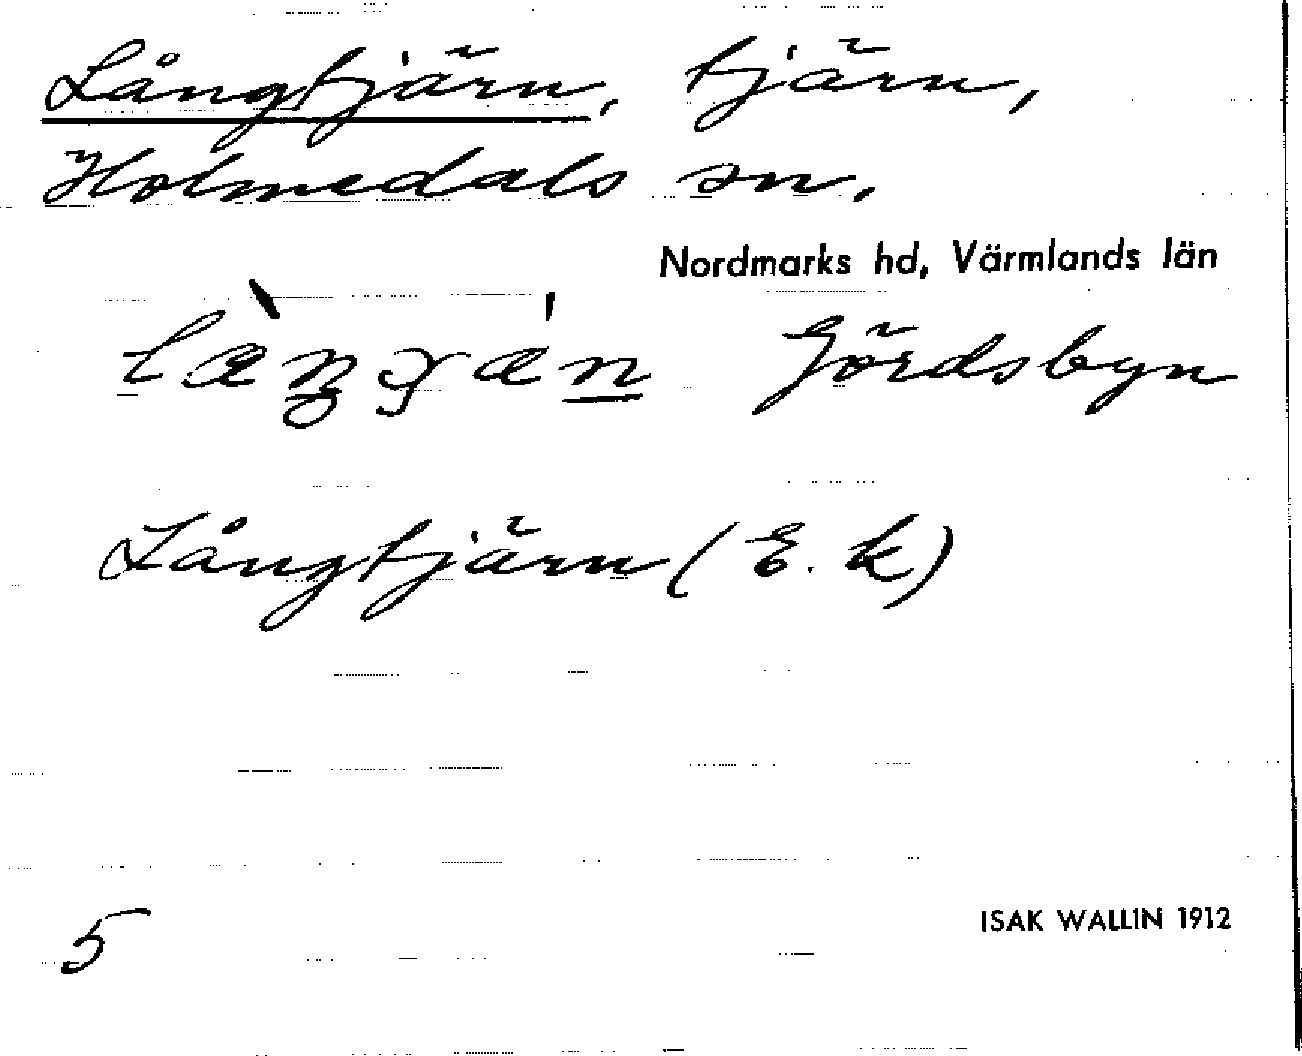 Långtjärn, tjärn,
Holmedals sn.
Nordmarks hd, Värmlands län
Gördsbyn
Långtjärn (E. k)
5
ISAK WALLIN 1912